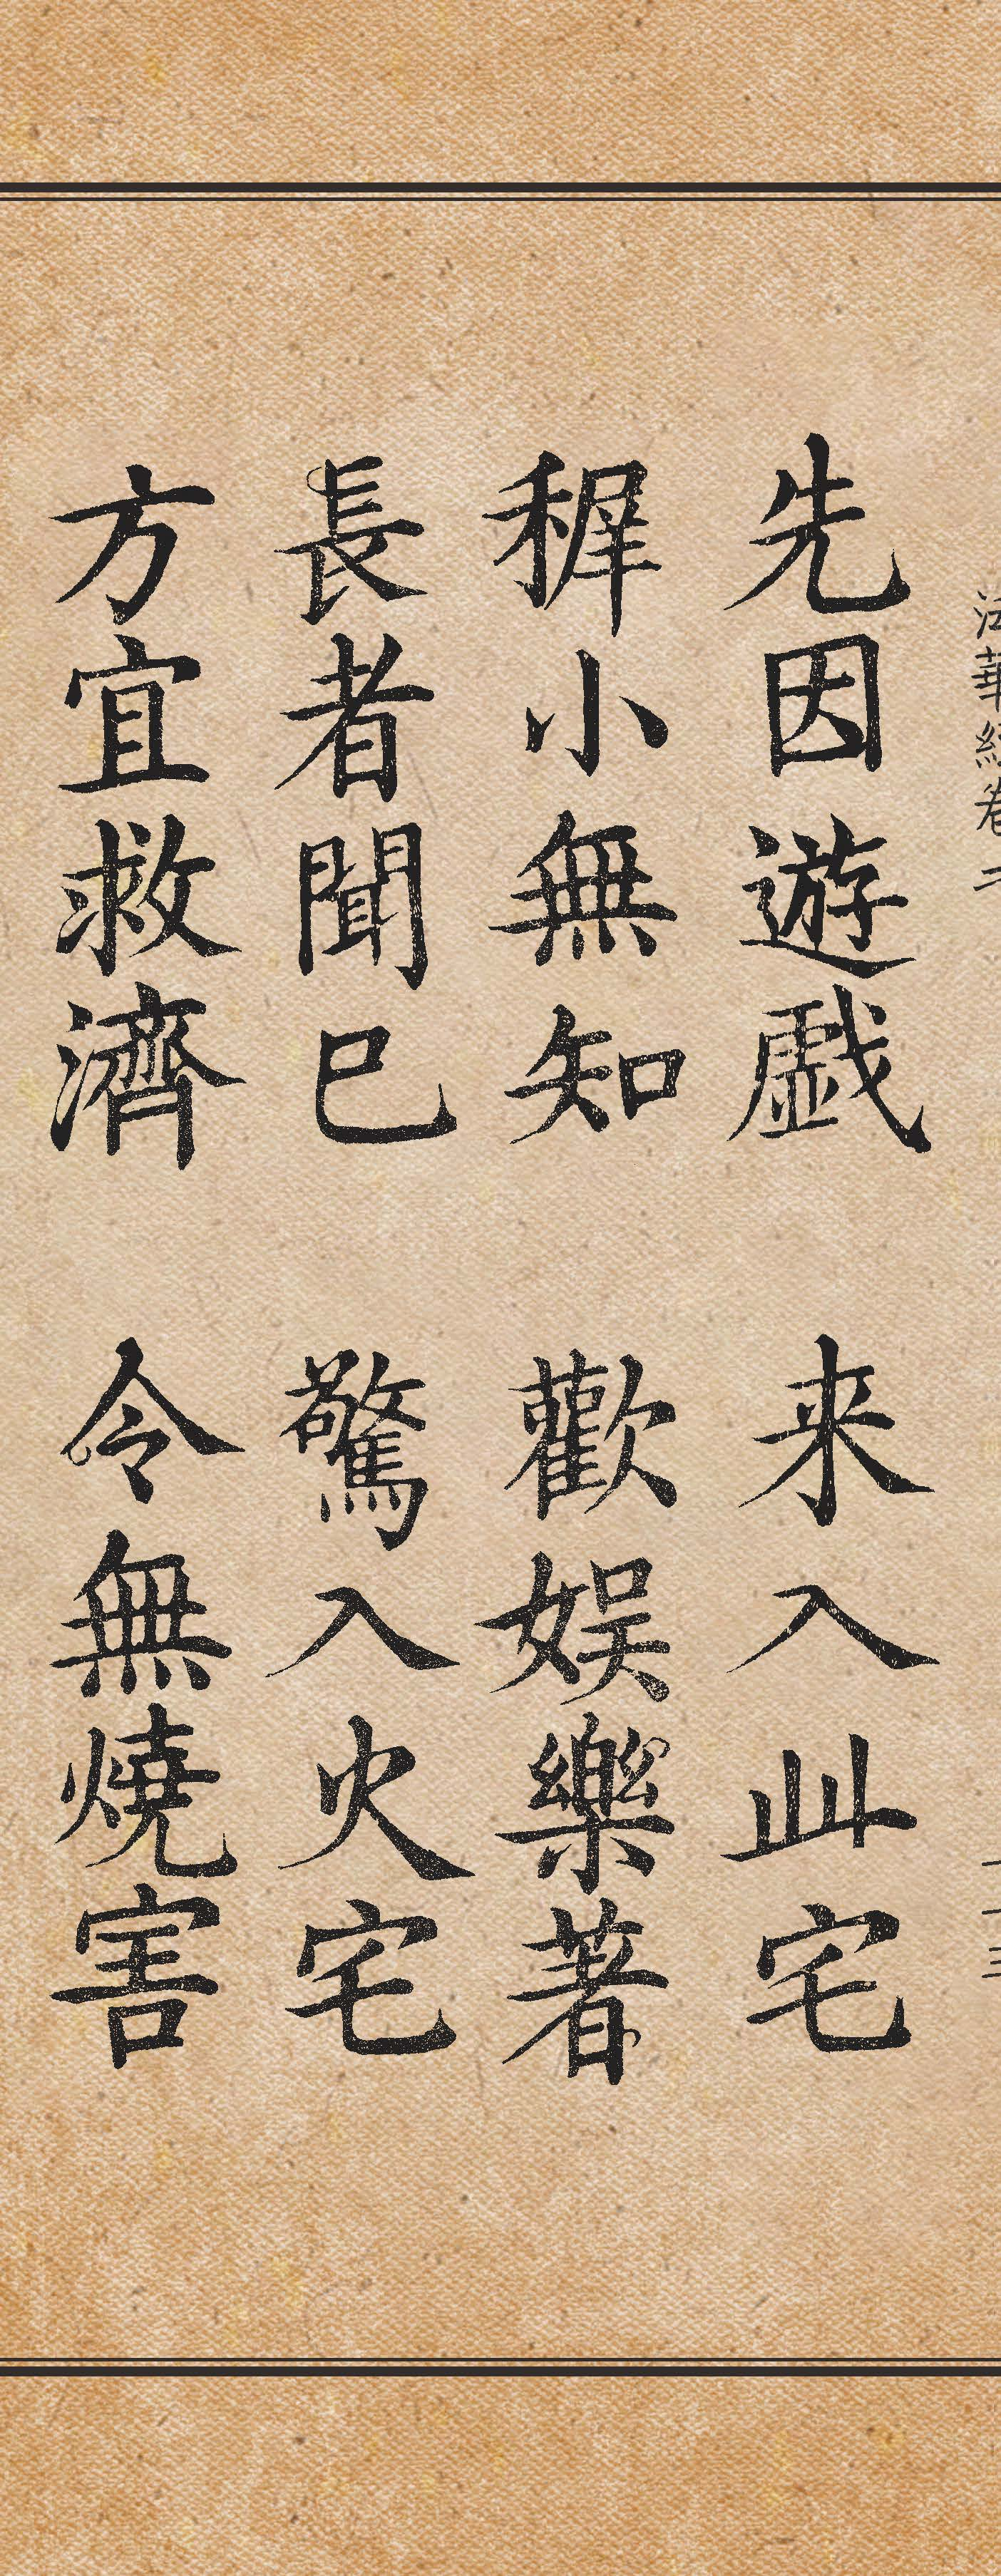 法華經卷二
三
先因遊戲　来入此宅
稺小無知　歡娛樂著
長者聞已　驚入火宅
方宜救濟　令無燒害